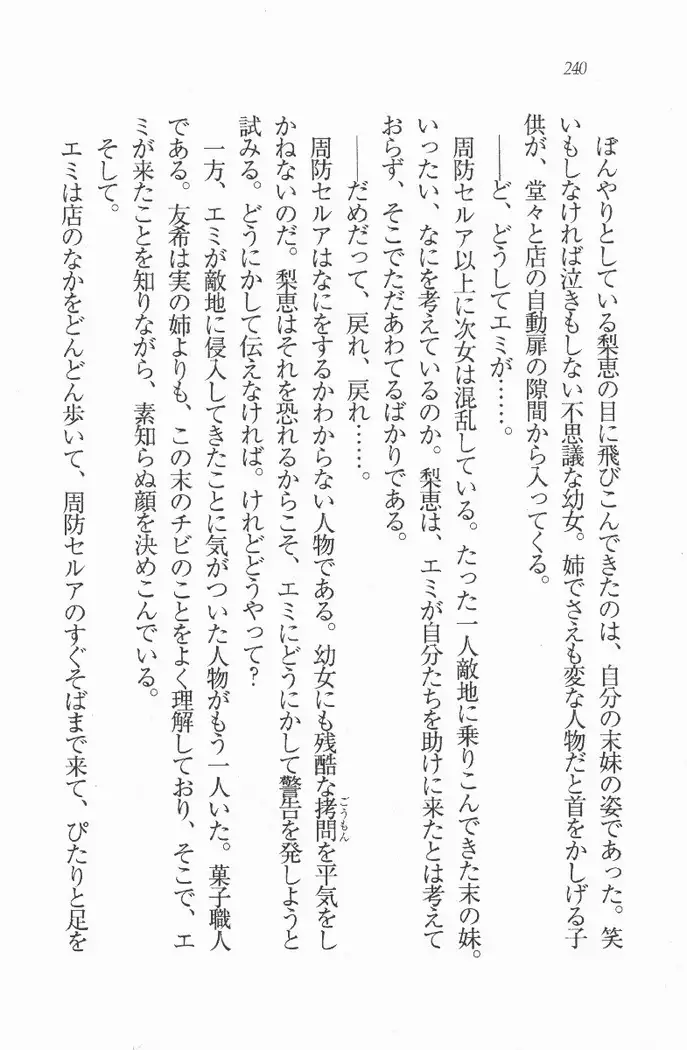 240
ぼんやりとしている梨恵の目に飛びこんできたのは、自分の末妹の姿であった。笑
いもしなければ泣きもしない不思議な幼女。姉でさえも変な人物だと首をかしげる子
供が、堂々と店の自動扉の隙間から入ってくる。
――ど、どうしてエミが……。
周防セルア以上に次女は混乱している。たった一人敵地に乗りこんできた末の妹。
いったい、なにを考えているのか。梨恵は、エミが自分たちを助けに来たとは考えて
おらず、そこでただあわてるばかりである。
――だめだって、戻れ、戻れ……。
周防セルアはなにをするかわからない人物である。幼女にも残酷な拷問を平気をし
ごうもん
かねないのだ。梨恵はそれを恐れるからこそ、エミにどうにかして警告を発しようと
試みる。どうにかして伝えなければ。けれどどうやって?
一方、エミが敵地に侵入してきたことに気がついた人物がもう一人いた。菓子職人
である。友希は実の姉よりも、この末のチビのことをよく理解しており、そこで、エ
ミが来たことを知りながら、素知らぬ顔を決めこんでいる。
そして。
エミは店のなかをどんどん歩いて、周防セルアのすぐそばまで来て、ぴたりと足を